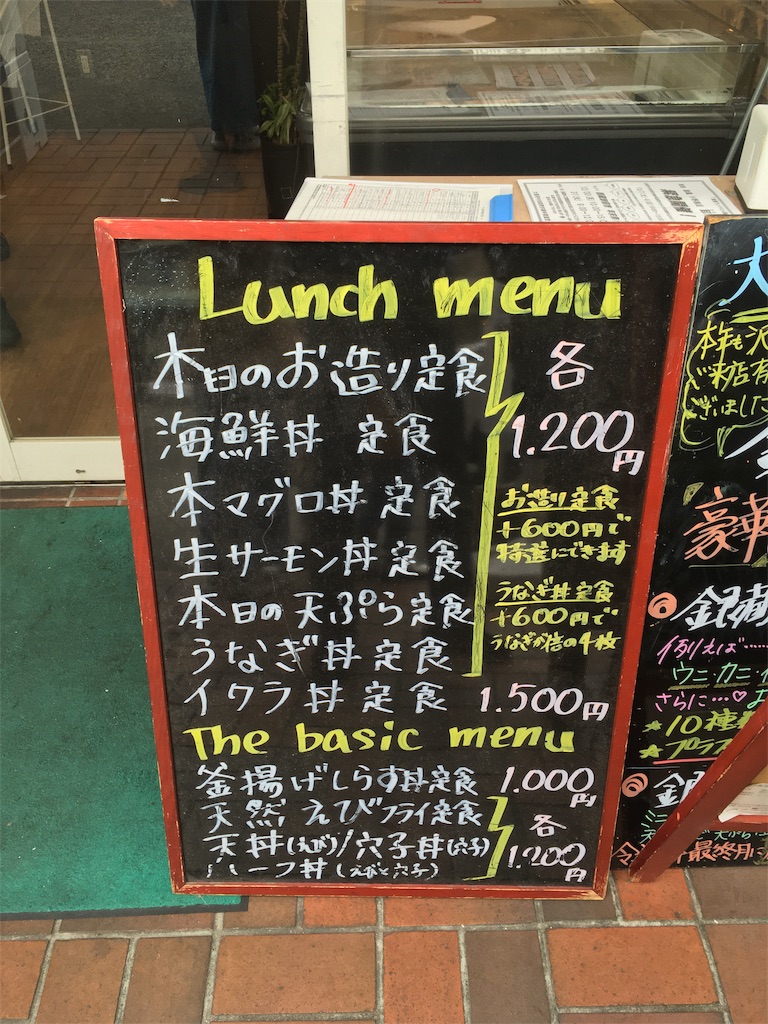 Lunch menu
本日のお造り定食
海鮮丼 定食
本マグロ丼 定食
生サーモン丼定食
本日の天ぷら定食
うなぎ丼 定食
各
1.200円
お造り定食
+600円で
特選にできます
うなぎ丼定食
+600円で
うなぎが倍の4枚
イクラ丼 定食 1.500円
The basic menu
釜揚げしらす丼定食 1.000円
天然 えびフライ定食
天丼(えび)/穴子丼(穴子)
ハーフ丼(えびと穴子)
各
1.200円
大
本年も沢
ご来店有
ございました
豪華
銀蔵
例えば……
ウニ・カニ・イ
さらに…♡お
★10種類
★プラス
ミニ
最終月